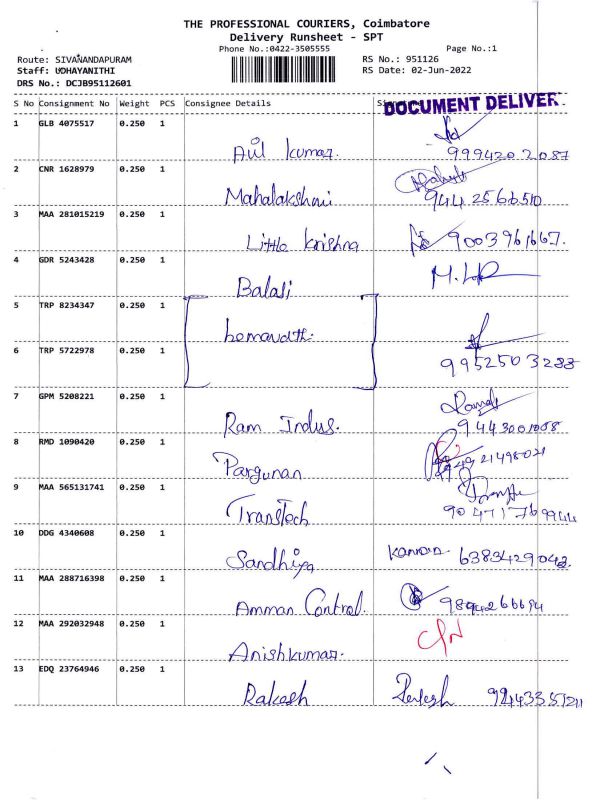 THE PROFESSIONAL COURIERS, Coimbatore
Delivery Runsheet - SPT
Phone No.:0422-3505555 Page No.:1
Route: SIVANANDAPURAM RS No.: 951126
Staff: UDHAYANITHI RS Date: 02-Jun-2022
DRS No.: DCJB95112601
S No Consignment No Weight PCS Consignee Details
DOCUMENT DELIVER
1 GLB 4075517 0.250 1
Kumar. 9994202087
2 CNR 1628979 0.250 1
Mahalakshmi 9442566510
3 MAA 281015219 0.250 1
Little Krishna 9003961667.
4 GDR 5243428 0.250 1
Balaji
5 TRP 8234347 0.250 1
hemavathi.
6 TRP 5722978 0.250 1
9952503288
7 GPM 5208221 0.250 1
Ram Indus. 9443001008
8 RMD 1090420 0.250 1
Pargunan
9 MAA 565131741 0.250 1
TransTech
10 DDG 4340608 0.250 1
Sandhiya Kannan 6383429043.
11 MAA 288716398 0.250 1
Amman Control. 9894266694
12 MAA 292032948 0.250 1
Anishkumar. C/N
13 EDQ 23764946 0.250 1
Rakesh